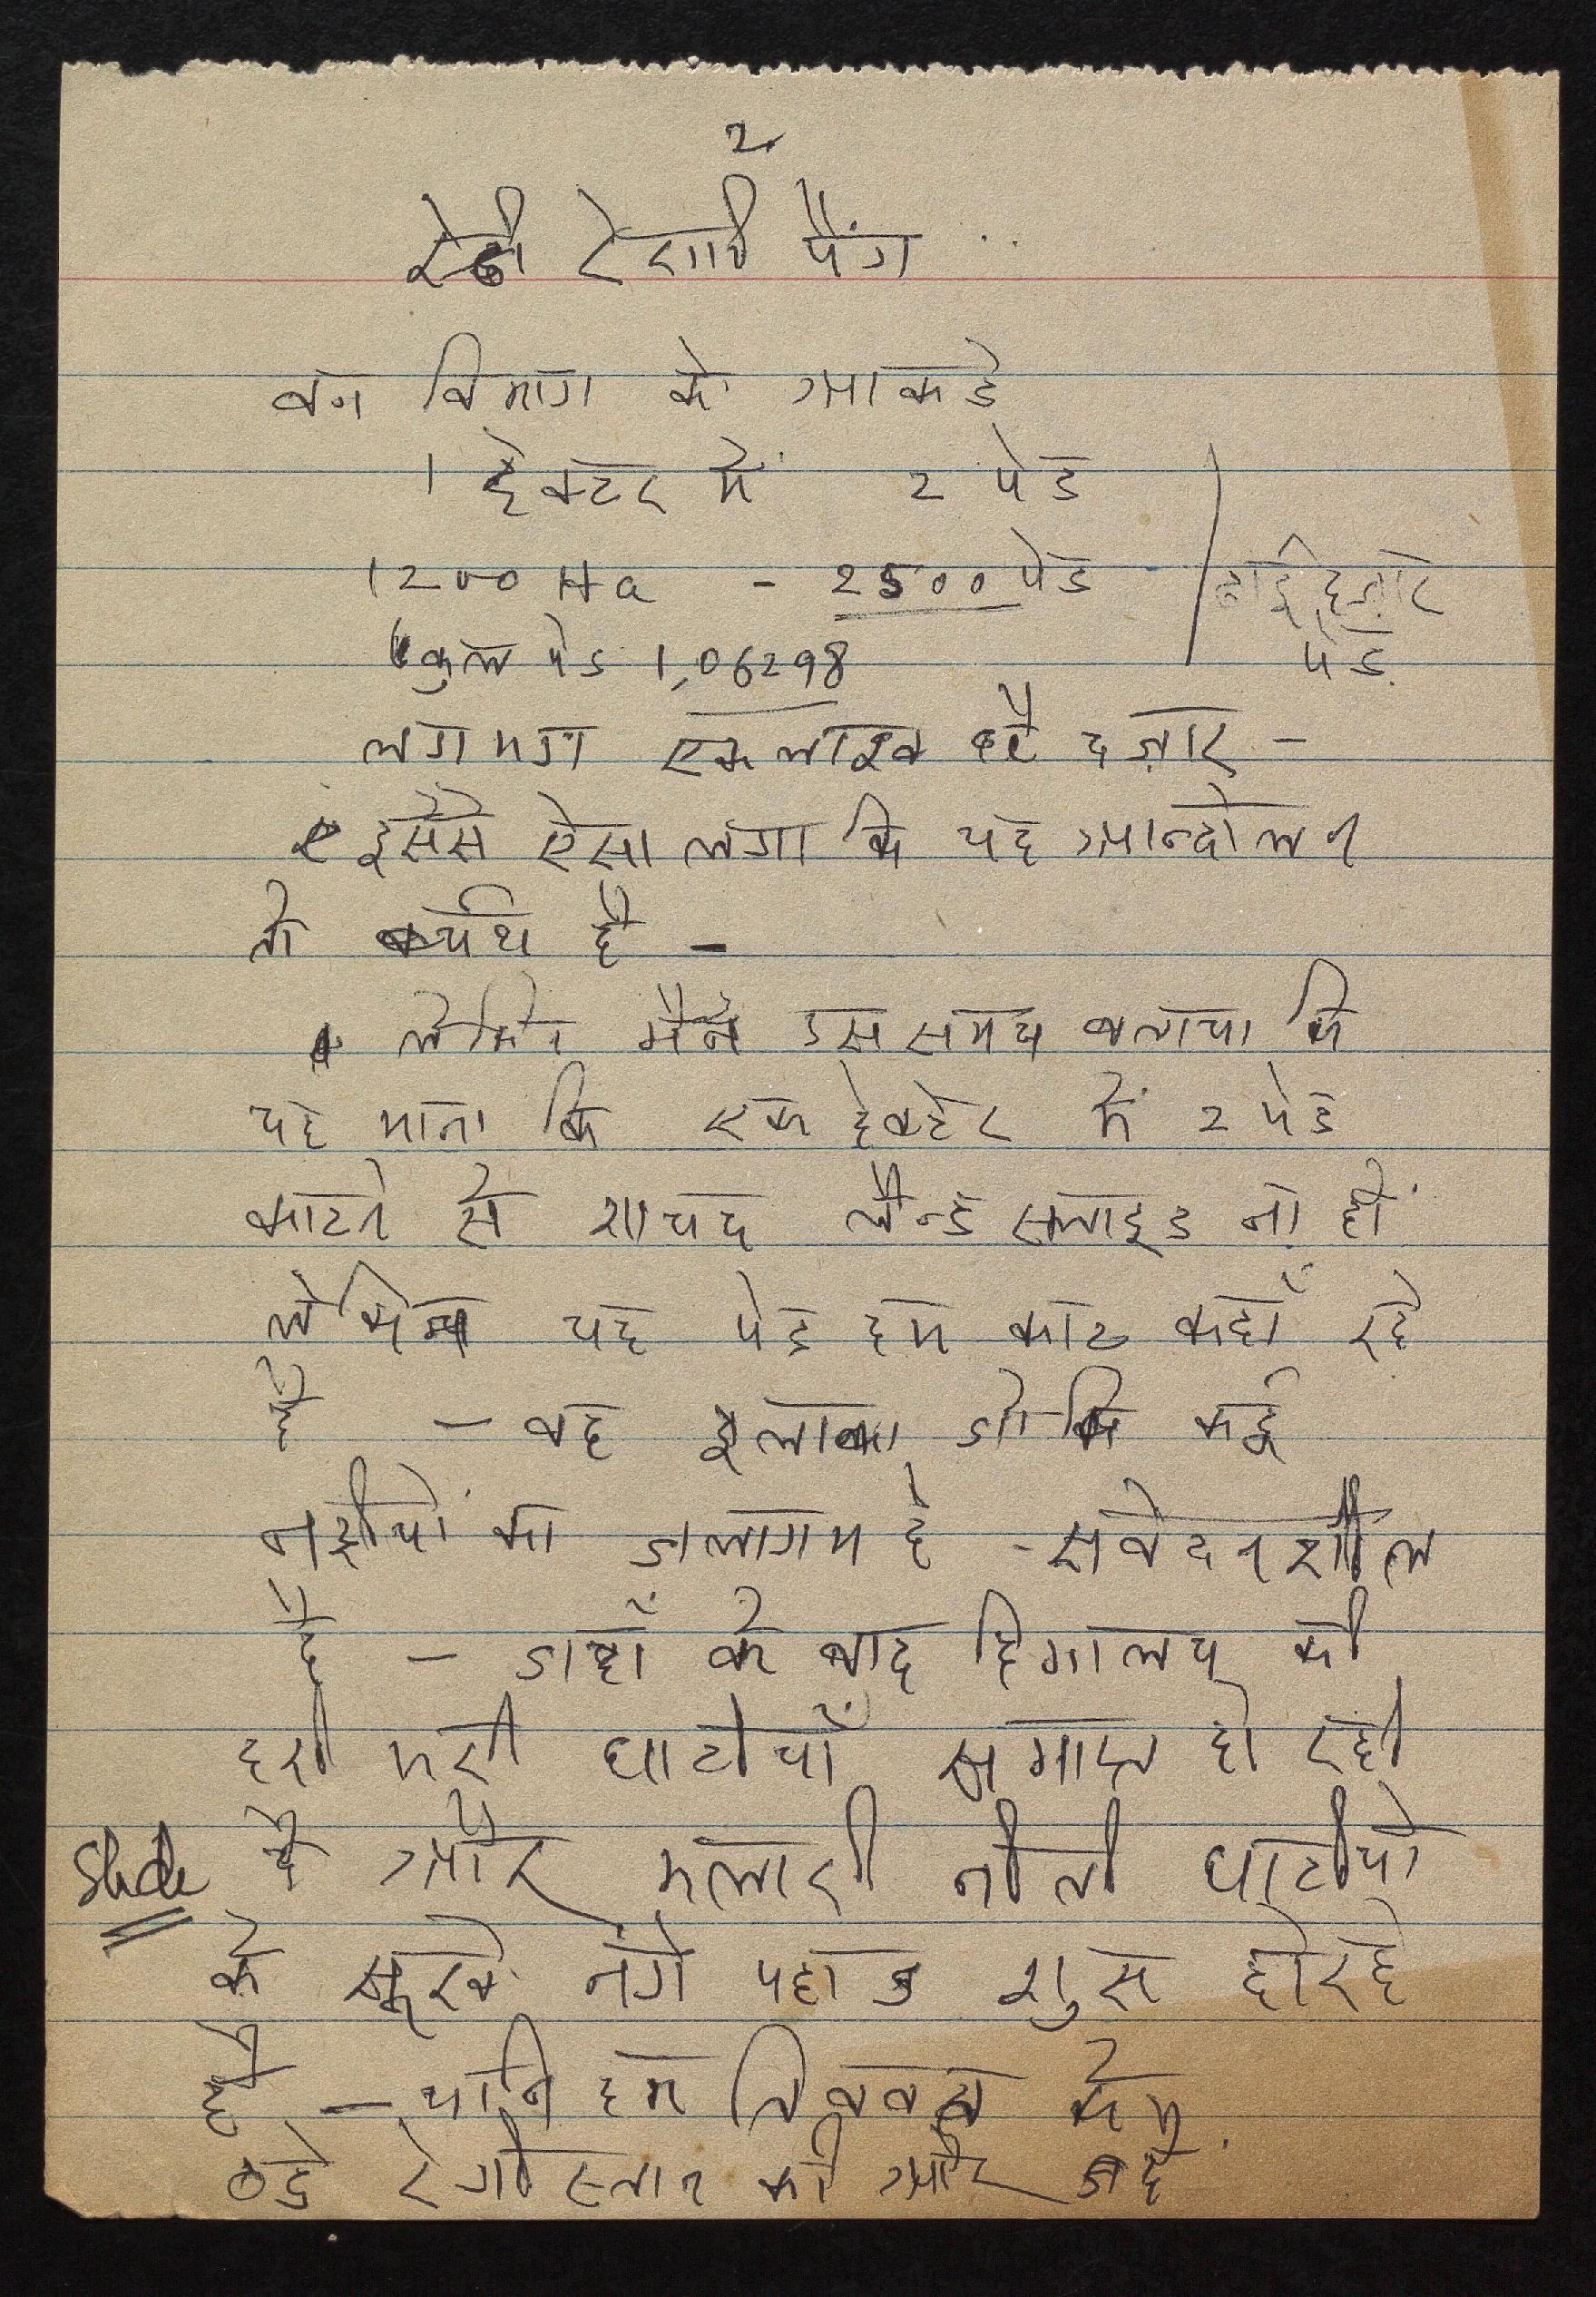 2
रेणी रेगाडी पैंग ..
वन विभाग के आकडे
1 हेक्टर में 2 पेड
1200 Ha - 2500 पेड ढाई हज़ार
कुल पेड 1,06298 पेड
लगभग एक लाख छै हज़ार -
इससे ऐसा लगा कि यह आन्दोलन
तो व्यर्थ है -
लेकिन मैने उस समय बताया कि
यह माना कि एक हेक्टेर में 2 पेड
काटने से शायद लैन्ड स्लाइड ना हों
लेकिन यह पेड हम काट कहाँ रहे
हैं - वह इलाका जो कि कई
नदीयों का जलागम है - सवेदनशील
है - जहाँ के बाद हिमालय की
हरी भरी घाटीयाँ समाप्त हो रही
Slide है और मलारी नीती घाटीयों
के सूखे नंगे पहाड शुरू हो रहे
हैं - यानि हम तिब्बत के
ठंडे रेगीस्तान की और बढे